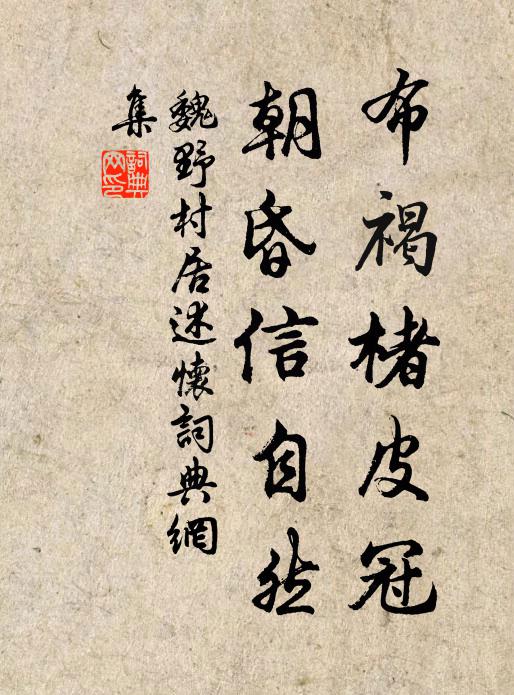 布褐楮皮冠
朝昏信自然
魏野村居述懷詞典網
集
詞典网印